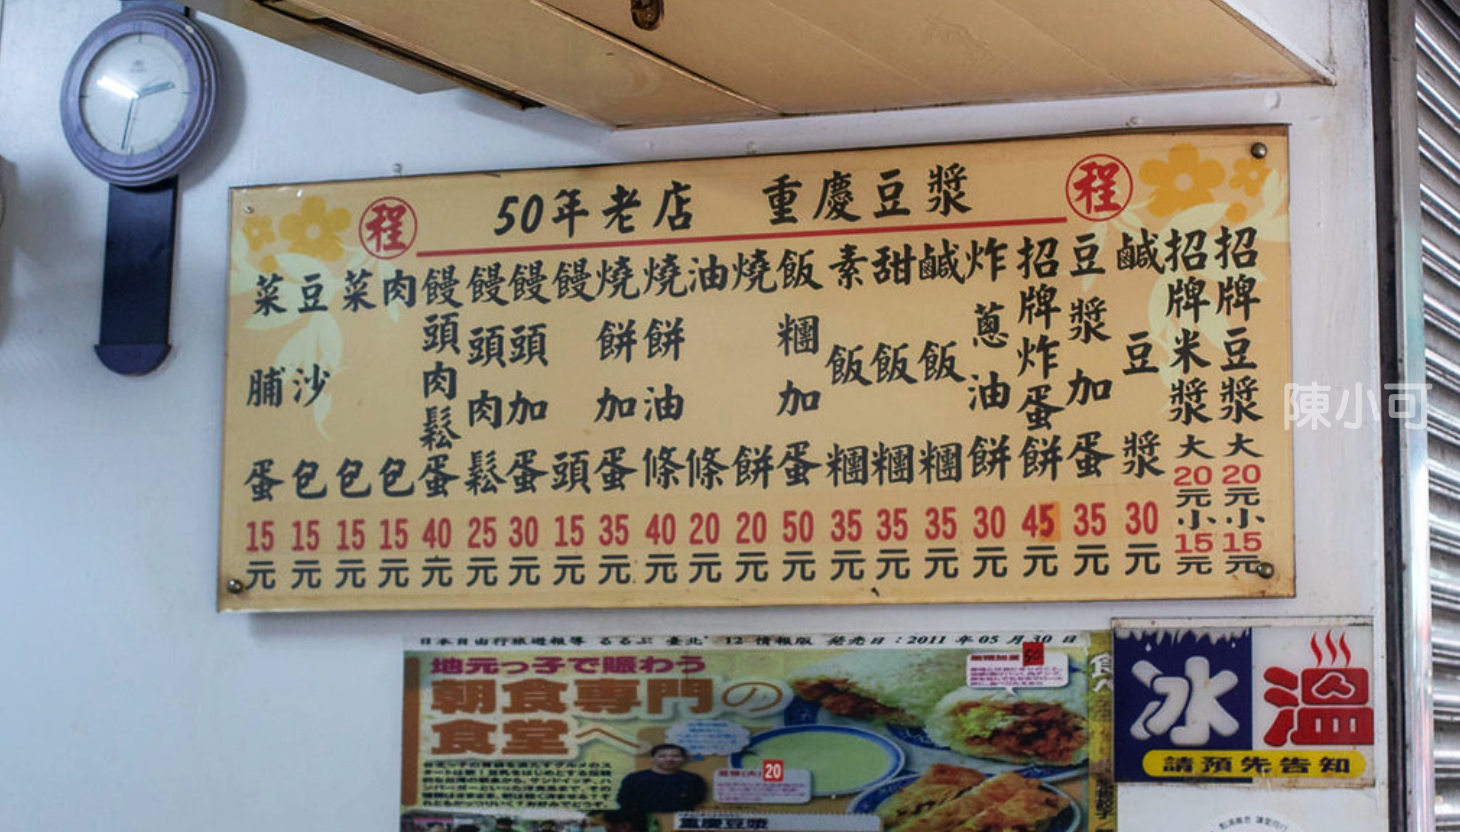 程 50年老店 重慶豆漿 程
招牌豆漿大20元小15元
招牌米漿大20元小15元
鹹豆漿30元
豆漿加蛋35元
招牌炸蛋餅45元
炸蔥油餅30元
鹹飯糰35元
甜飯糰35元
素飯糰35元
飯糰加蛋50元
燒餅20元
油條20元
燒餅油條40元
燒餅加蛋35元
饅頭15元
饅頭加蛋30元
饅頭肉鬆25元
饅頭肉鬆蛋40元
肉包15元
菜包15元
豆沙包15元
菜脯蛋15元
陳小可
日本自由行旅遊報導 るるぶ 臺北'12 情報版 發売日:2011年05月30日
地元っ子で賑わう
朝食専門の
食堂へ
50
20
重慶豆漿
冰 溫
請預先告知